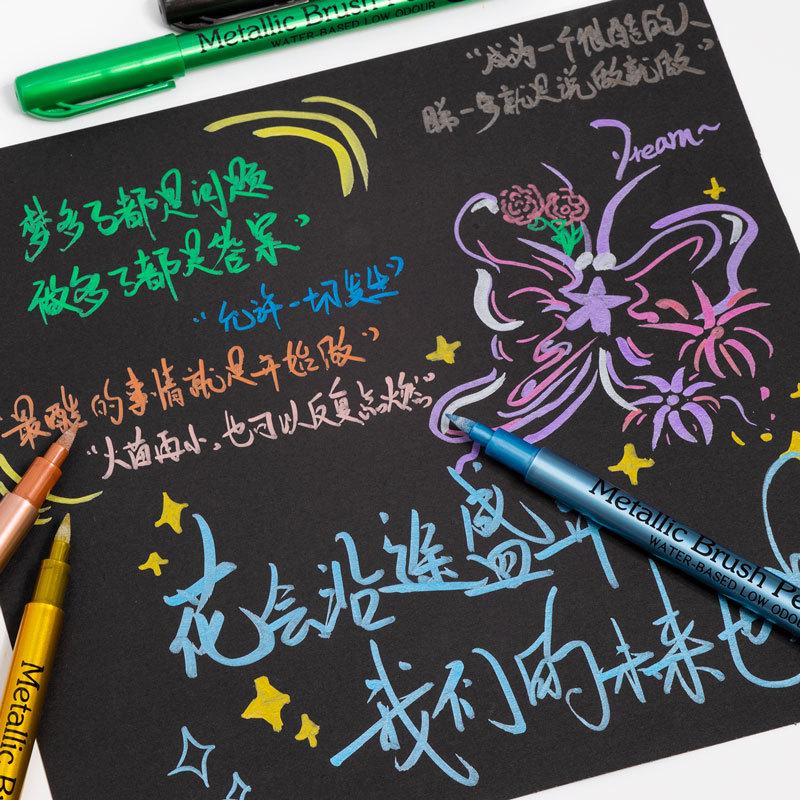 Metallic Brush Pe
WATER-BASED LOW ODOUR
“成为一个很酷的人
第一步就是说做就做”
Dream~
梦多了都是问题
做多了都是答案”
“允许一切发生”
“最酷的事情就是开始做”
“火苗再小，也可以反复点燃”
花会沿途盛开
我们的未来也
Metallic Brush Pe
WATER-BASED LOW ODOU
Metallic Bru